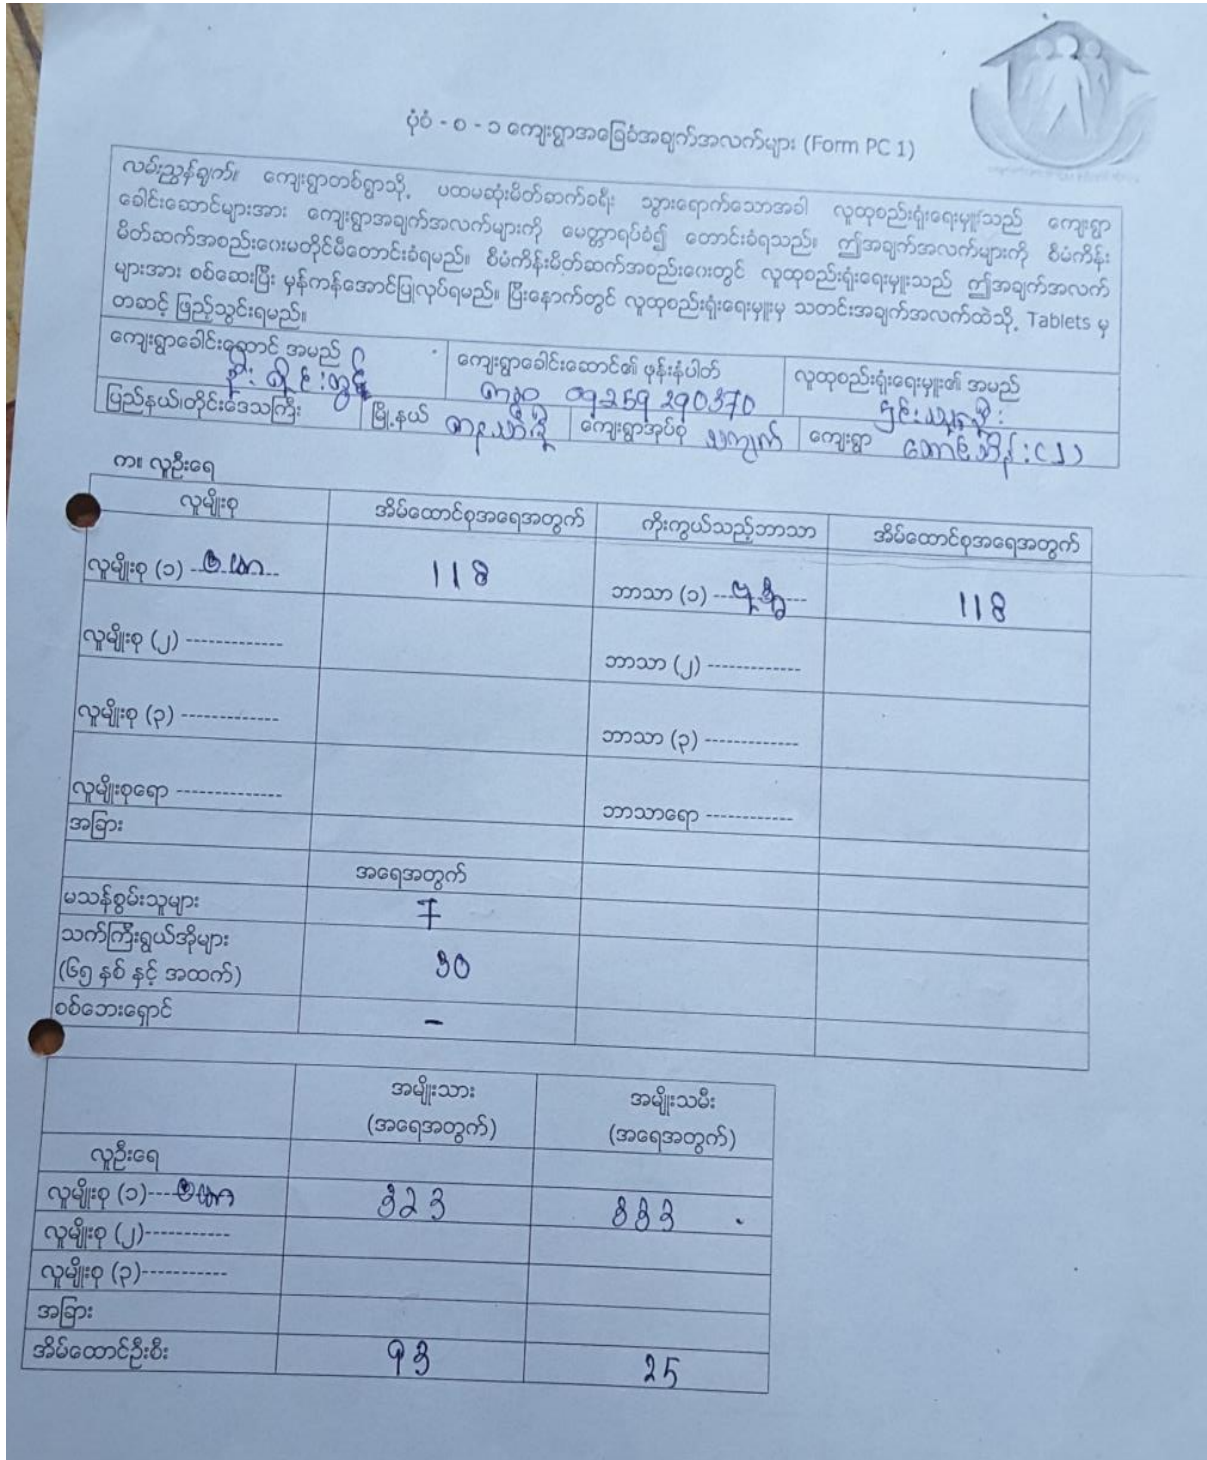 ပုံစံ - စ - ၁ ကျေးရွာအခြေခံအချက်အလက်များ (Form PC 1)
လမ်းညွှန်ချက်။ ကျေးရွာတစ်ရွာသို့ ပထမဆုံးမိတ်ဆက်ခရီး သွားရောက်သောအခါ လူထုစည်းရုံးရေးမှူးသည် ကျေးရွာ
ခေါင်းဆောင်များအား ကျေးရွာအချက်အလက်များကို မေတ္တာရပ်ခံ၍ တောင်းခံရသည်။ ဤအချက်အလက်များကို စီမံကိန်း
မိတ်ဆက်အစည်းဝေးမတိုင်မီတောင်းခံရမည်။ စီမံကိန်းမိတ်ဆက်အစည်းဝေးတွင် လူထုစည်းရုံးရေးမှူးသည် ဤအချက်အလက်
များအား စစ်ဆေးပြီး မှန်ကန်အောင်ပြုလုပ်ရမည်။ ပြီးနောက်တွင် လူထုစည်းရုံးရေးမှူးမှ သတင်းအချက်အလက်ထဲသို့ Tablets မှ
တဆင့် ဖြည့်သွင်းရမည်။
ကျေးရွာခေါင်းဆောင် အမည် ကျေးရွာခေါင်းဆောင်၏ ဖုန်းနံပါတ် လူထုစည်းရုံးရေးမှူး၏ အမည်
09259290370
ပြည်နယ်၊တိုင်းဒေသကြီး မြို့နယ် ကျေးရွာအုပ်စု ကျေးရွာ
က။ လူဦးရေ
လူမျိုးစု အိမ်ထောင်စုအရေအတွက် ကိုးကွယ်သည့်ဘာသာ အိမ်ထောင်စုအရေအတွက်
လူမျိုးစု (၁) ဗမာ 118 ဘာသာ (၁) ဗုဒ္ဓ 118
လူမျိုးစု (၂) ------------- ဘာသာ (၂) -------------
လူမျိုးစု (၃) ------------- ဘာသာ (၃) -------------
လူမျိုးစုရော -------------- ဘာသာရော ------------
အခြား
အရေအတွက်
မသန်စွမ်းသူများ 7
သက်ကြီးရွယ်အိုများ
(၆၅ နှစ် နှင့် အထက်) 30
စစ်ဘေးရှောင် -
အမျိုးသား အမျိုးသမီး
(အရေအတွက်) (အရေအတွက်)
လူဦးရေ
လူမျိုးစု (၁)----ဗမာ 323 333
လူမျိုးစု (၂)-----------
လူမျိုးစု (၃)-----------
အခြား
အိမ်ထောင်ဦးစီး 93 25